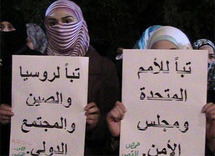 تبأ للأمم
المتحدة
ومجلس
الأمن.
تبأ لروسيا
والصين
والمجتمع
الدولي.